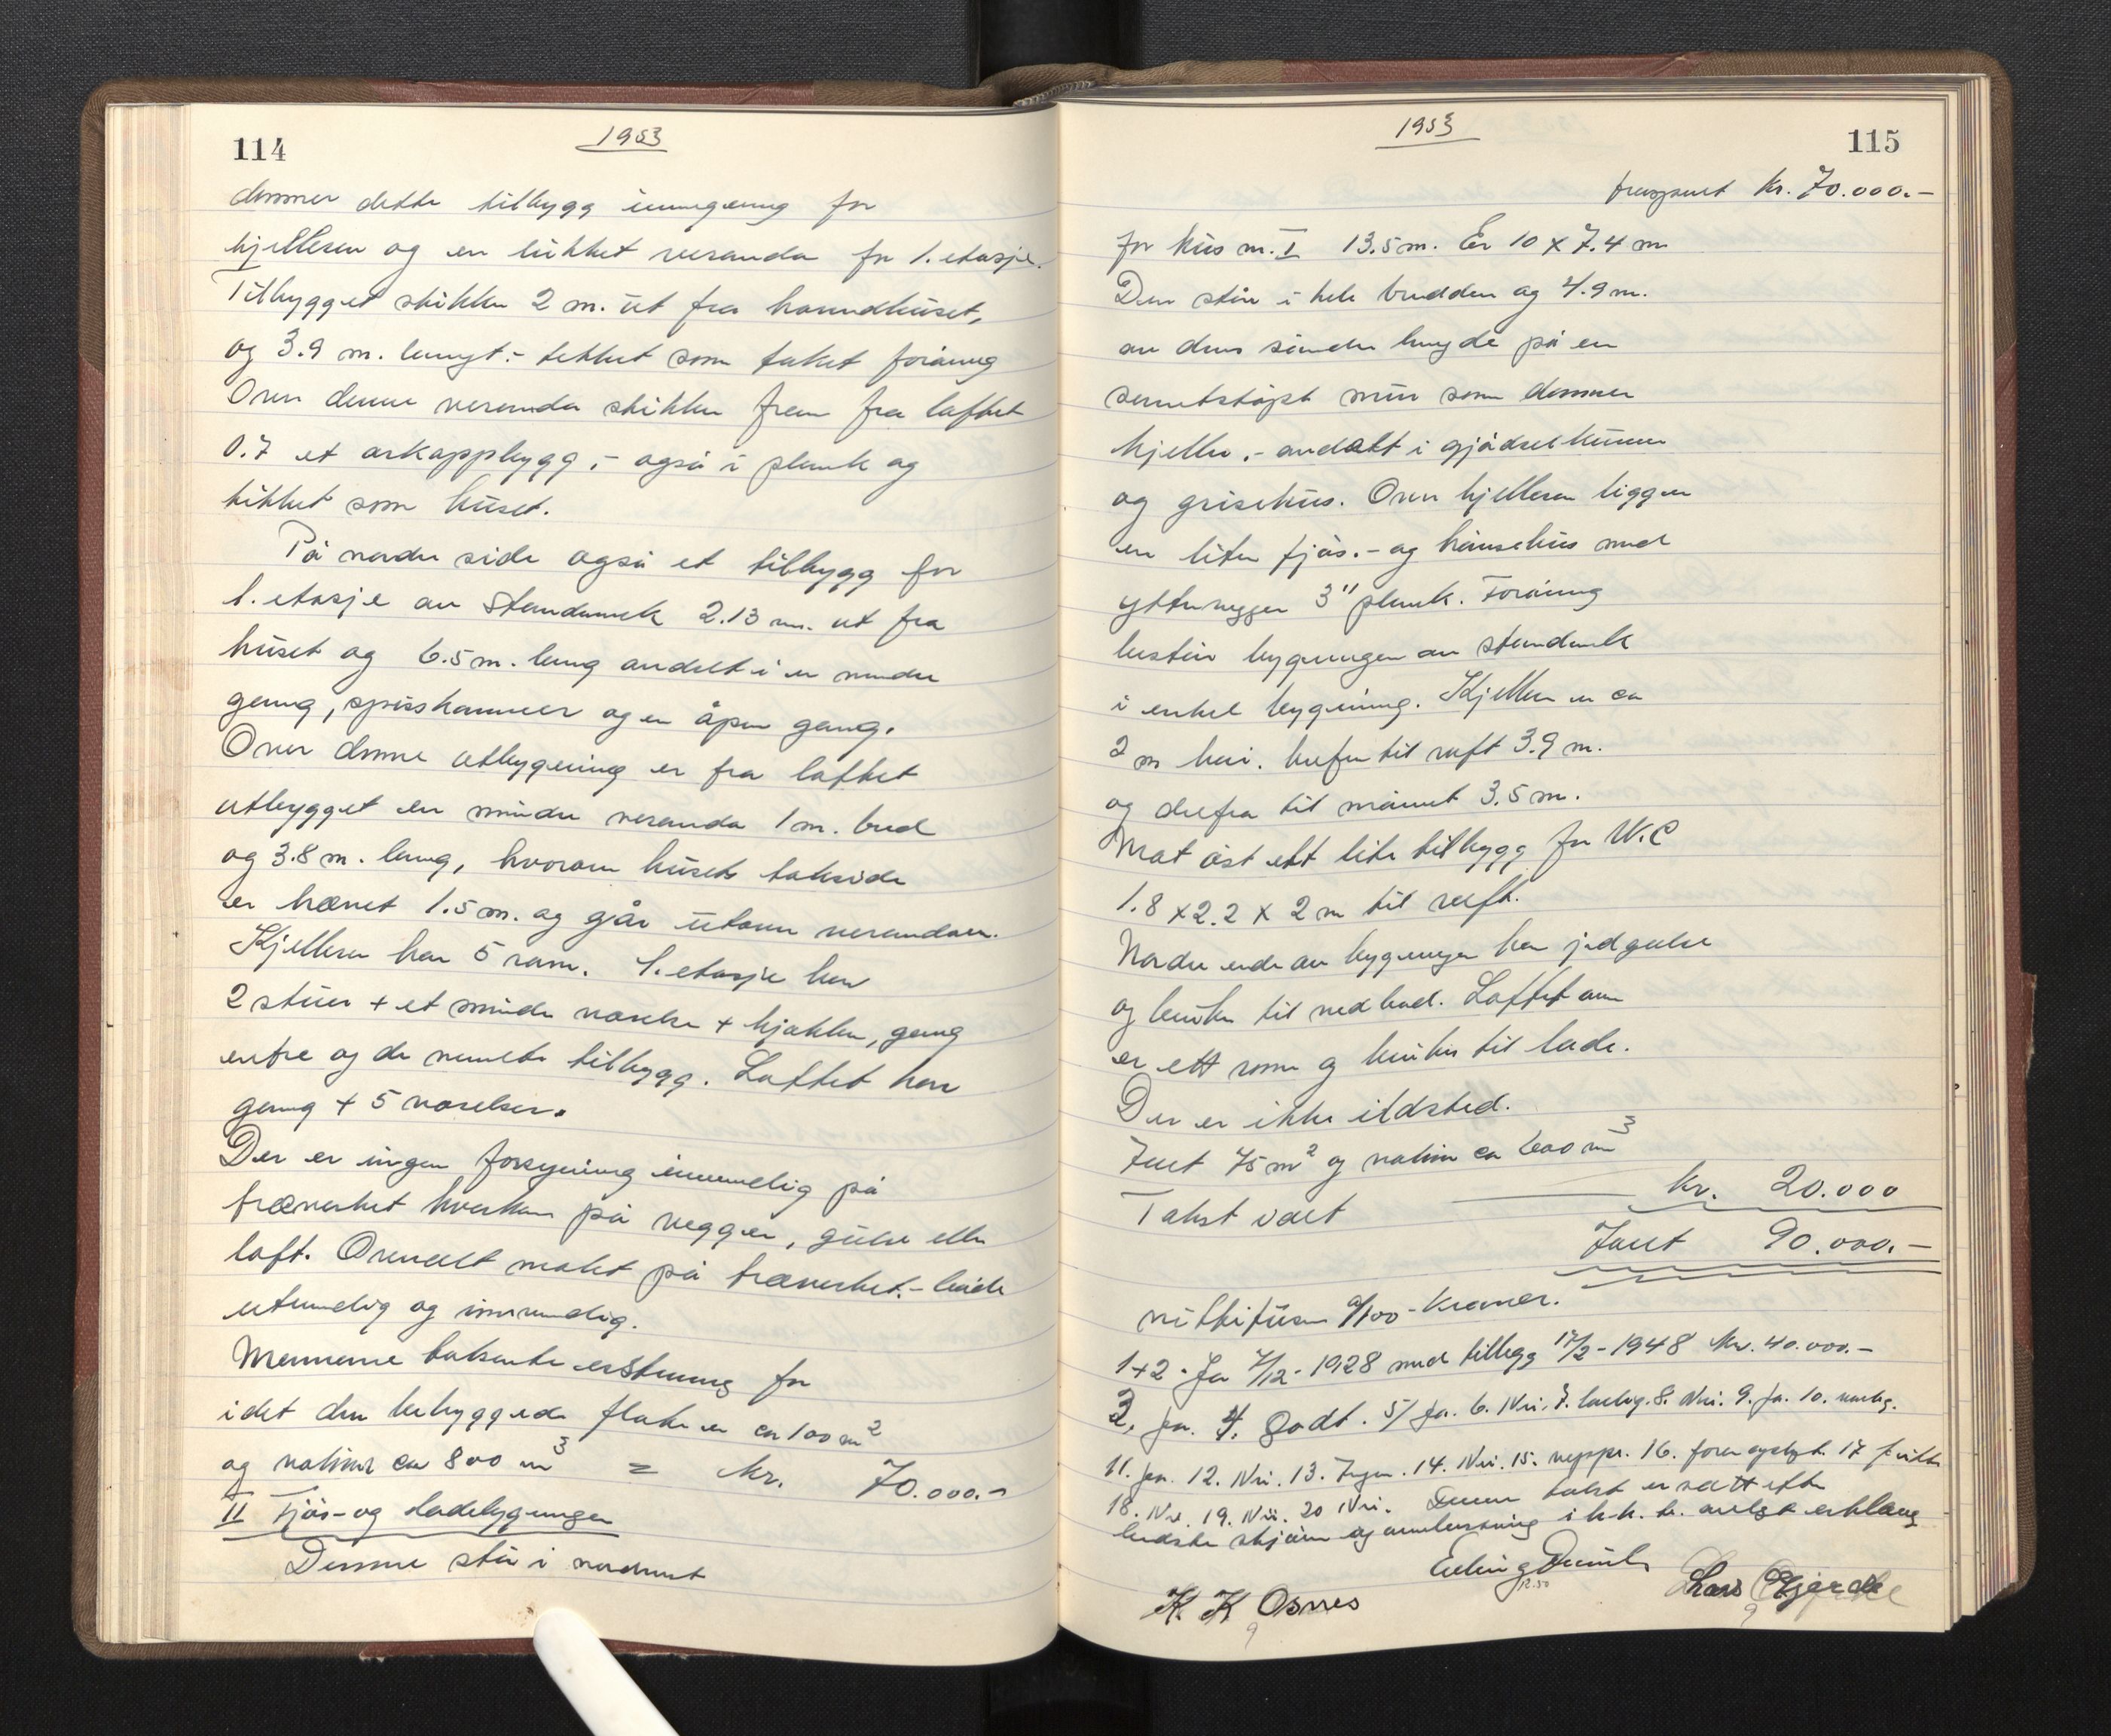 114
1953
danner dette tilbygg inngang for
kjelleren og en lukket veranda for 1. etasje.
Tilbygget stikker 2 m. ut fra hovedhuset,
og 3.9 m. langt.- tekket som taket forövrig
Over denne veranda stikker frem fra loftet
0.7 et arkoppbygg,- også i plank og
tekket som huset.
På nordre side også et tilbygg for
1. etasje av standverk 2.13 m. ut fra
huset og 6.5 m. lang avdelt i en mindre
gang, spisskammer og en åpen gang.
Over denne utbygning er fra loftet
utbygget en mindre veranda 1 m. bred
og 3.8 m. lang, hvorom husets takside
er hævet 1.5 m. og går utover verandaen.
Kjelleren har 5 rom. 1. etasje har
2 stuer + et mindre værelse + kjøkken, gang
entre og de nevnte tilbygg. Loftet har
gang + 5 værelser.
Der er ingen forsyning innvendig på
træverket hverken på vegger, gulve eller
loft. Overalt malet på træverket.- både
utvendig og innvendig.
Mennene takserte erstatning for
idet den bebyggede flate er ca 100 m²
og volum ca 800 m³ = kr. 70.000.-
II Fjös- og ladebygningen
Denne står i nordvest
1953
115
fremført kr. 70.000.-
for hus nr. I 13.5 m. Er 10 x 7.4 m
Den står i hele bredden og 4.9 m.
av dens søndre lengde på en
sementstöpt mur som danner
kjeller.- avdelt i gjödselkummer
og grisehus. Over kjelleren ligger
en liten fjös.- og hönsehus med
yttervegger 3" plank. Forövrig
består bygningen av standverk
i enkel bygning. Kjelleren er ca
2 m höi. herfra til raft 3.9 m.
og derfra til mönnet 3.5 m.
Mot öst ett lite tilbygg for W.C
1.8 x 2.2 x 2 m til raft.
Nordre ende av bygningen har jordgulv
og brukes til vedbod. Loftet over
er ett rom og brukes til lade.
Der er ikke ildsted.
Flate 75 m² og volum ca 600 m³
Takst idet kr. 20.000
Ialt 90.000.-
nittitusen 0/100 - Kroner.
1+2. Ja 7/12- 1928 med tillegg 17/2-1948 kr. 40.000.-
3. Ja. 4. Godt. 5/ Ja. 6. Nei. 7. 8. Nei. 9. Ja. 10.
11. Ja. 12. Nei. 13. Ingen. 14. Nei. 15. 16. 17
18. Nei. 19. Nei. 20 Nei. Denne takst er satt efter
beste skjönn og overbevisning i h.h. t. avlagt erklæring
Erling
K. K Osnes
Lars Gjerde